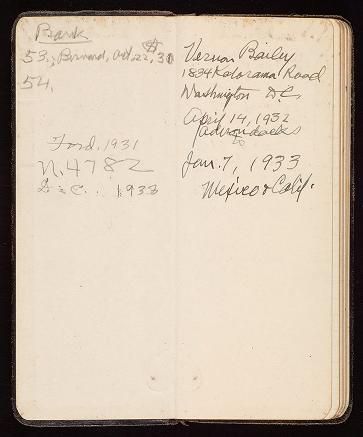 Bank
53., Burward, Oct. 22, 31
54,
Ford. 1931
N. 4782
D & C. 1933
Vernon Bailey
1834 Kalorama Road
Washington D.C.
April 14, 1932
Adirondacks
to
Jan. 7, 1933
Mexico & Calif.